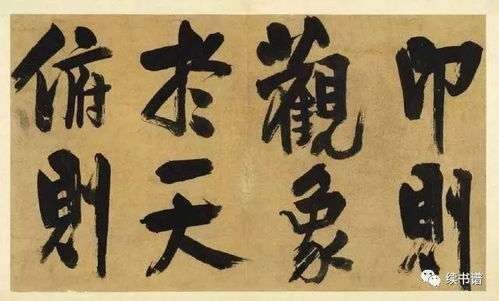 卬則
觀象
於天
俯則
续书谱